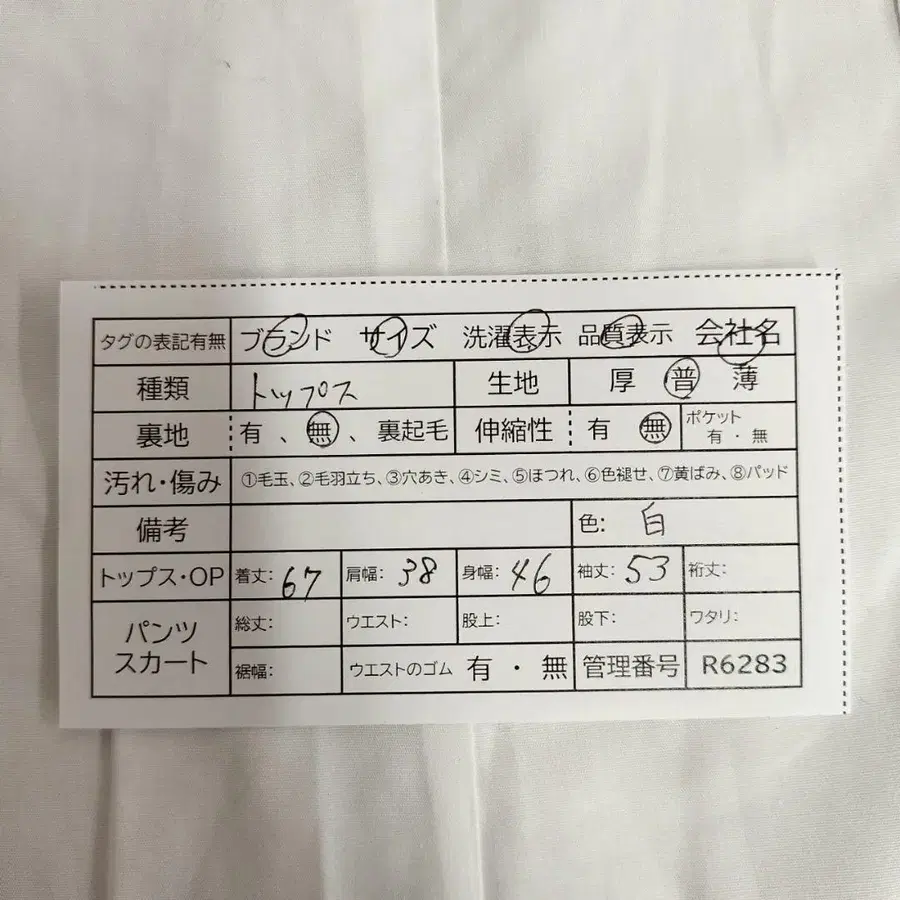 タグの表記有無 ブランド サイズ 洗濯表示 品質表示 会社名
種類 トップス 生地 厚 普 薄
裏地 有 、 無 、 裏起毛 伸縮性 有 無 ポケット 有 ・ 無
汚れ・傷み ①毛玉、②毛羽立ち、③穴あき、④シミ、⑤ほつれ、⑥色褪せ、⑦黄ばみ、⑧パッド
備考 色: 白
トップス・OP 着丈: 67 肩幅: 38 身幅: 46 袖丈: 53 裄丈:
パンツ スカート 総丈: ウエスト: 股上: 股下: ワタリ:
裾幅: ウエストのゴム 有 ・ 無 管理番号 R6283